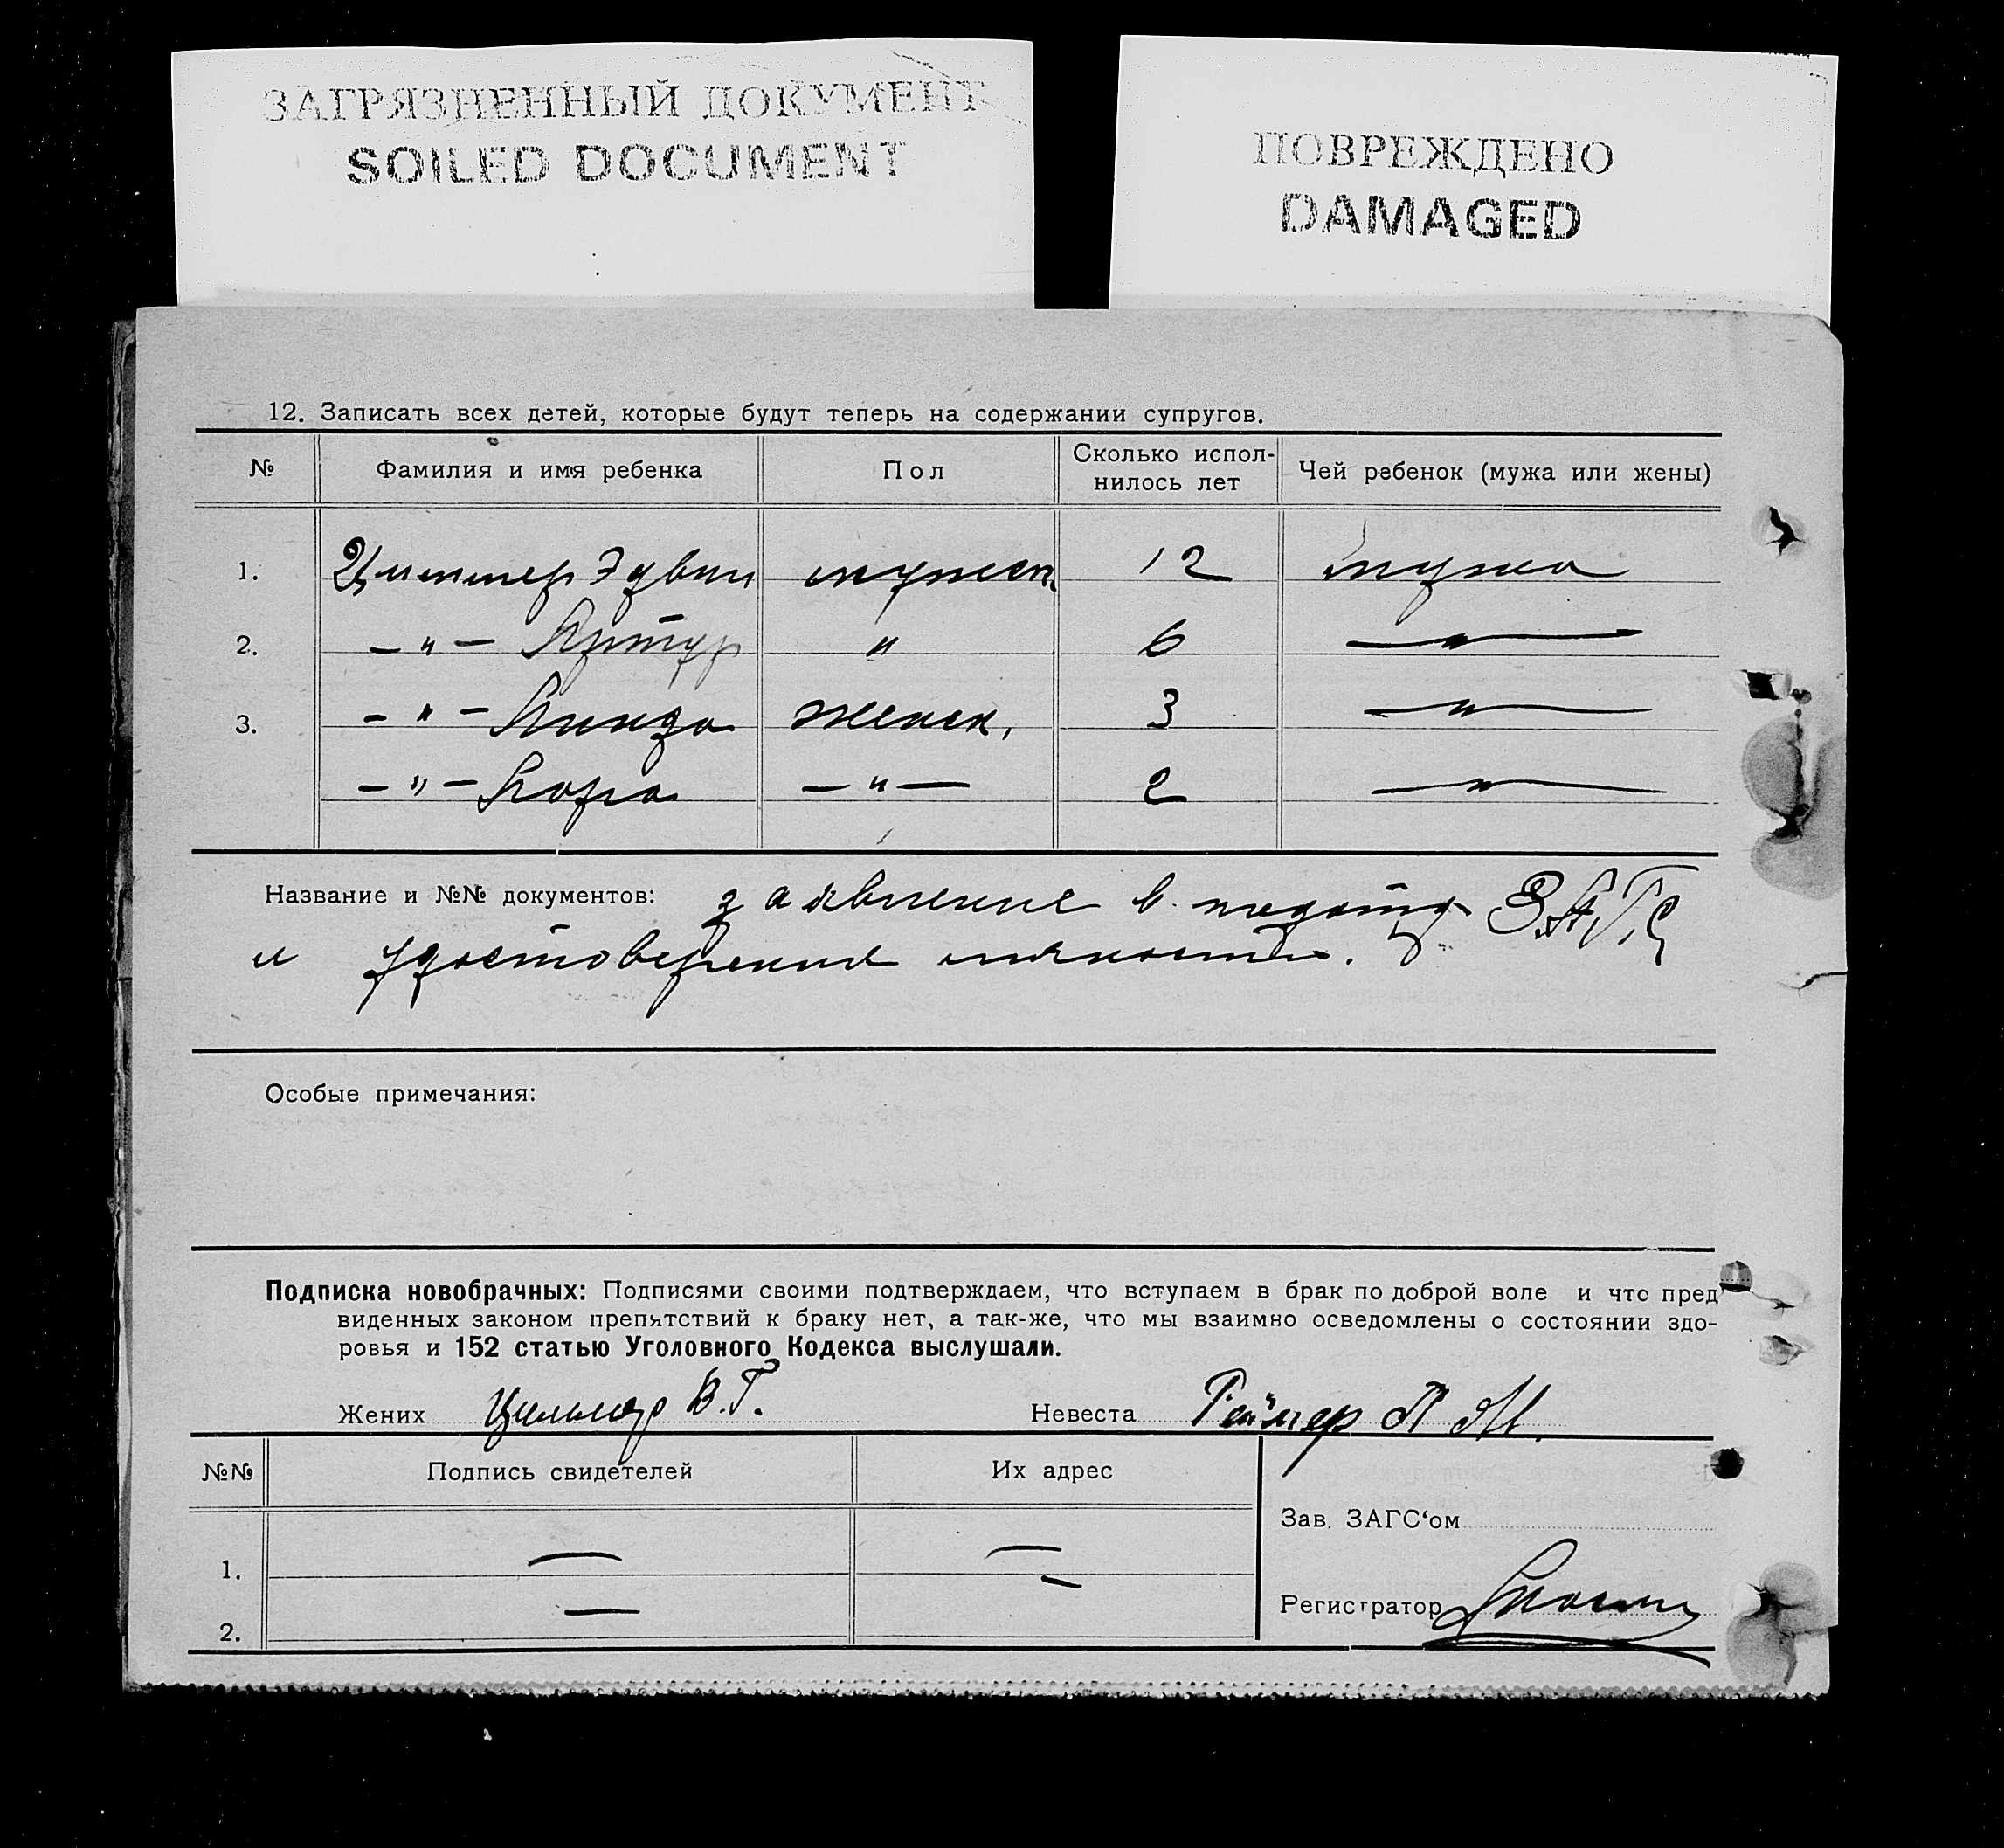 ЗАГРЯЗНЕННЫЙ ДОКУМЕНТ
SOILED DOCUMENT
ПОВРЕЖДЕНО
DAMAGED
12. Записать всех детей, которые будут теперь на содержании супругов.
№ Фамилия и имя ребенка Пол Сколько испол-нилось лет Чей ребенок (мужа или жены)
1. Циммер Эдвин мужск. 12 мужа
2. — " — Артур " 6 — " —
3. — " — Линда женск. 3 — " —
— " — Лора — " — 2 — " —
Название и №№ документов: заявление в ЗАГС
и удостоверение личности.
Особые примечания:
Подписка новобрачных: Подписями своими подтверждаем, что вступаем в брак по доброй воле и что пред
виденных законом препятствий к браку нет, а так-же, что мы взаимно осведомлены о состоянии здо-
ровья и 152 статью Уголовного Кодекса выслушали.
Жених Циммер В.Г. Невеста Реймер А М.
№№ Подпись свидетелей Их адрес
Зав. ЗАГС‘ом
1. — —
Регистратор
2. — —